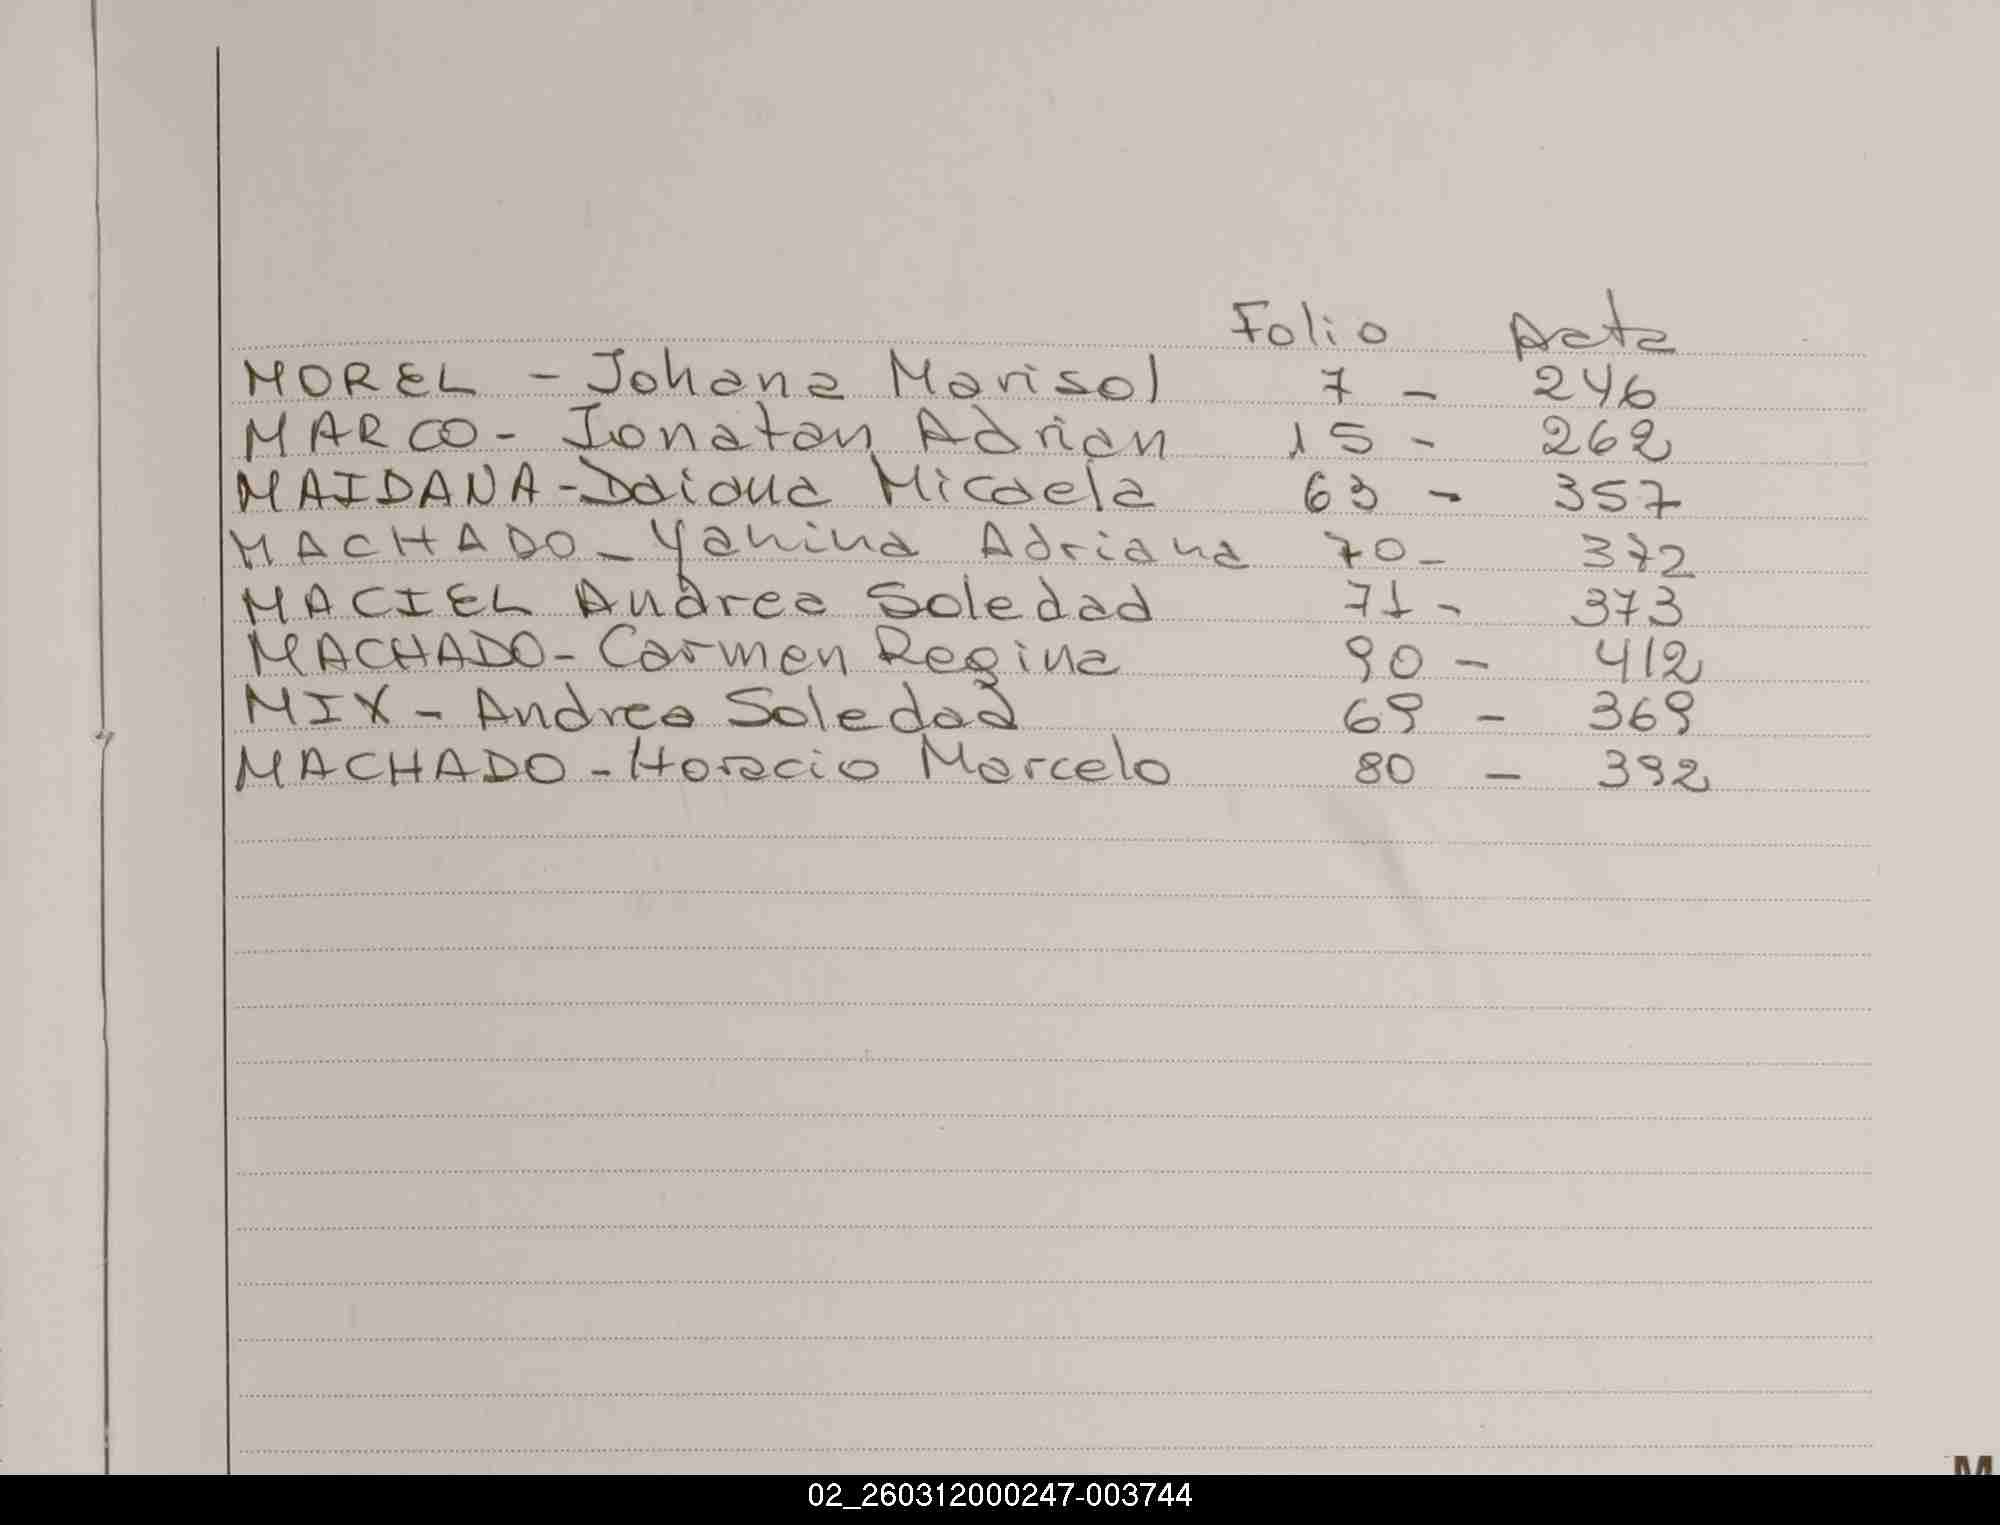 Folio Acta
MOREL - Johana Marisol 7 - 246
MARCO - Jonatan Adrian 15 - 262
MAIDANA - Daiana Micaela 63 - 357
MACHADO - Yanina Adriana 70 - 372
MACIEL Andrea Soledad 71 - 373
MACHADO - Carmen Regina 90 - 412
MIX - Andrea Soledad 69 - 369
MACHADO - Horacio Marcelo 80 - 392
M
02_260312000247-003744